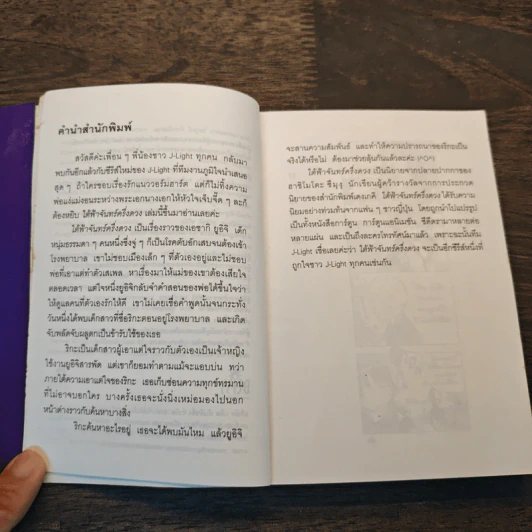 คำนำสำนักพิมพ์
สวัสดีค่ะเพื่อน ๆ พี่น้องชาว J-Light ทุกคน กลับมา
พบกันอีกแล้วกับซีรีส์ใหม่ของ J-Light ที่ทีมงานภูมิใจนำเสนอ
สุด ๆ ถ้าใครชอบเรื่องรักแนววอร์มฮาร์ต แต่ก็ไม่ทิ้งความ
พ่อแง่แม่งอนระหว่างพระเอกนางเอกให้หัวใจเจ็บจี๊ด ๆ ละก็
ต้องหยิบ ใต้ฟ้าจันทร์ครึ่งดวง เล่มนี้ขึ้นมาอ่านเลยค่ะ
ใต้ฟ้าจันทร์ครึ่งดวง เป็นเรื่องราวของเอซากิ ยูอิจิ เด็ก
หนุ่มธรรมดา ๆ คนหนึ่งซึ่งจู่ ๆ ก็เป็นโรคตับอักเสบจนต้องเข้า
โรงพยาบาล เขาไม่ชอบเมืองเล็ก ๆ ที่ตัวเองอยู่และไม่ชอบ
พ่อที่เอาแต่ทำตัวเสเพล หาเรื่องมาให้แม่ของเขาต้องเสียใจ
ตลอดเวลา แต่ใจหนึ่งยูอิจิกลับจำคำสอนของพ่อได้ขึ้นใจว่า
ให้ดูแลคนที่ตัวเองรักให้ดี เขาไม่เคยเชื่อคำพูดนั้นจนกระทั่ง
วันหนึ่งได้พบเด็กสาวที่ชื่อริกะตอนอยู่โรงพยาบาล และเกิด
จับพลัดจับผลูตกเป็นข้ารับใช้ของเธอ
ริกะเป็นเด็กสาวผู้เอาแต่ใจราวกับตัวเองเป็นเจ้าหญิง
ใช้งานยูอิจิสารพัด แต่เขาก็ยอมทำตามแม้จะแอบบ่น ทว่า
ภายใต้ความเอาแต่ใจของริกะ เธอเก็บซ่อนความทุกข์ทรมาน
ที่ไม่อาจบอกใคร บางครั้งเธอจะนั่งนิ่งเหม่อมองไปนอก
หน้าต่างราวกับค้นหาบางสิ่ง
ริกะค้นหาอะไรอยู่ เธอจะได้พบมันไหม แล้วยูอิจิ
จะสานความสัมพันธ์ และทำให้ความปรารถนาของริกะเป็น
จริงได้หรือไม่ ต้องมาช่วยลุ้นกันแล้วละค่ะ (^O^)
ใต้ฟ้าจันทร์ครึ่งดวง เป็นนิยายจากปลายปากกาของ
ฮาชิโมโตะ ซึมุงุ นักเขียนผู้คว้ารางวัลจากการประกวด
นิยายของสำนักพิมพ์เดงเกคิ ใต้ฟ้าจันทร์ครึ่งดวง ได้รับความ
นิยมอย่างท่วมท้นจากแฟน ๆ ชาวญี่ปุ่น โดยถูกนำไปแปรรูป
เป็นทั้งหนังสือการ์ตูน การ์ตูนแอนิเมชัน ซีดีดรามาหลายต่อ
หลายแผ่น และเป็นถึงละครโทรทัศน์มาแล้ว เพราะฉะนั้นทีม
J-Light เชื่อเลยค่ะว่า ใต้ฟ้าจันทร์ครึ่งดวง จะเป็นอีกซีรีส์หนึ่งที่
ถูกใจชาว J-Light ทุกคนเช่นกัน